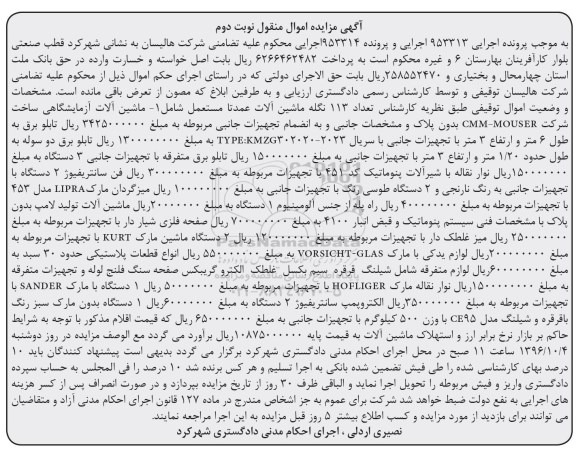 آگهی مزایده اموال منقول نوبت دوم
به موجب پرونده اجرایی ۹۵۳۳۱۳ اجرایی و پرونده ۹۵۳۳۱۴اجرایی محکوم علیه تضامنی شرکت هالیسان به نشانی شهرکرد قطب صنعتی
بلوار کارآفرینان بهارستان ۶ و غیره محکوم است به پرداخت ۶۲۶۶۴۶۲۴۸۲ ریال بابت اصل خواسته و خسارت وارده در حق بانک ملت
استان چهارمحال و بختیاری و ۲۵۸۵۵۲۴۷۰ریال بابت حق الاجرای دولتی که در راستای اجرای حکم اموال ذیل از محکوم علیه تضامنی
شرکت هالیسان توقیفی و توسط کارشناس رسمی دادگستری ارزیابی و به طرفین ابلاغ که مصون از تعرض باقی مانده است. مشخصات
و وضعیت اموال توقیفی طبق نظریه کارشناس تعداد ۱۱۳ نگله ماشین آلات عمدتا مستعمل شامل۱- ماشین آلات آزمایشگاهی ساخت
شرکت CMM-MOUSER بدون پلاک و مشخصات جانبی و به انضمام تجهیزات جانبی مربوطه به مبلغ ۳۴۲۵۰۰۰۰۰۰ ریال تابلو برق به
طول ۶ متر و ارتفاع ۳ متر با تجهیزات جانبی با سریال TYPE:KMZG۳۰۲۰۲۰-۲۰۲۳ به مبلغ ۱۳۰۰۰۰۰۰۰۰ ریال تابلو برق دو سوله به
طول حدود ۱/۲۰ متر و ارتفاع ۳ متر با تجهیزات جانبی به مبلغ ۱۵۰۰۰۰۰۰۰ ریال تابلو برق متفرقه با تجهیزات جانبی ۳ دستگاه به مبلغ
۱۵۰۰۰۰۰۰۰ریال نوار نقاله با شیرآلات پنوماتیک کد ۴۵۱ با تجهیزات مربوطه به مبلغ ۳۰۰۰۰۰۰۰۰ ریال فن سانتریفیوژ ۲ دستگاه با
تجهیزات جانبی به رنگ نارنجی و ۲ دستگاه طوسی رنگ با تجهیزات جانبی به مبلغ ۱۰۰۰۰۰۰۰۰ ریال میزگردان مارکLIPRA مدل ۴۵۳
با تجهیزات مربوطه به مبلغ ۴۰۰۰۰۰۰۰۰ ریال راه پله از جنس آلومینیوم ۱ دستگاه به مبلغ ۲۰۰۰۰۰۰۰ریال ماشین آلات تولید لامپ بدون
پلاک با مشخصات فنی سیستم پنوماتیک و قبض انبار ۴۱۰۰ به مبلغ ۷۰۰۰۰۰۰۰۰ ریال صفحه فلزی شیار دار با تجهیزات مربوطه به مبلغ
۲۵۰۰۰۰۰۰۰ ریال میز غلطک دار با تجهیزات مربوطه به مبلغ ۱۲۰۰۰۰۰۰۰ ریال ۲ دستگاه ماشین مارک KURT با تجهیزات مربوطه به
مبلغ ۲۰۰۰۰۰۰۰۰ریال لوازم یدکی با مارک VORSICHT-GLAS به مبلغ ۵۵۰۰۰۰۰۰۰ ریال انواع قطعات پلاستیکی حدود ۳۰ سبد به
مبلغ ۶۰۰۰۰۰۰۰ریال لوازم متفرقه شامل شیلنگ قرقره سیم بکسل غلطک الکترو گریبکس صفحه سنگ فلنج لوله و تجهیزات متفرقه
به مبلغ ۱۵۰۰۰۰۰۰۰ریال نوار نقاله مارک HOFLIGER با تجهیزات مربوطه به مبلغ ۵۰۰۰۰۰۰۰۰ ریال ۱ دستگاه با مارک SANDER با
تجهیزات مربوطه به مبلغ ۳۵۰۰۰۰۰۰۰ریال الکتروپمپ سانتریفیوژ ۲ دستگاه به مبلغ ۶۰۰۰۰۰۰۰ریال ۱ دستگاه بدون مارک سبز رنگ
باقرقره و شیلنگ مدل CE۹۵ با وزن ۵۰۰ کیلوگرم با تجهیزات جانبی به مبلغ ۶۵۰۰۰۰۰۰۰ ریال که قیمت اقلام مذکور با توجه به شرایط
حاکم بر بازار نرخ برابر ارز و استهلاک ماشین آلات به قیمت پایه ۱۰۸۷۵۰۰۰۰۰۰ریال برآورد می گردد مع الوصف مزایده در روز دوشنبه
۱۳۹۶/۱۰/۴ ساعت ۱۱ صبح در محل اجرای احکام مدنی دادگستری شهرکرد برگزار می گردد بدیهی است پیشنهاد کنندگان باید ۱۰
درصد بهای کارشناسی شده را طی فیش تضمین شده بانکی به اجرا تسلیم و هر کس برنده شد ۱۰ درصد را فی المجلس به حساب سپرده
دادگستری واریز و فیش مربوطه را تحویل اجرا نماید و الباقی ظرف ۳۰ روز از تاریخ مزایده بپردازد و در صورت انصراف پس از کسر هزینه
های اجرایی به نفع دولت ضبط خواهد شد شرکت برای عموم به جز اشخاص مندرج در ماده ۱۲۷ قانون اجرای احکام مدنی آزاد و متقاضیان
می توانند برای بازدید از مورد مزایده و کسب اطلاع بیشتر ۵ روز قبل مزایده به این اجرا مراجعه نمایند.
نصیری اردلی ، اجرای احکام مدنی دادگستری شهرکرد